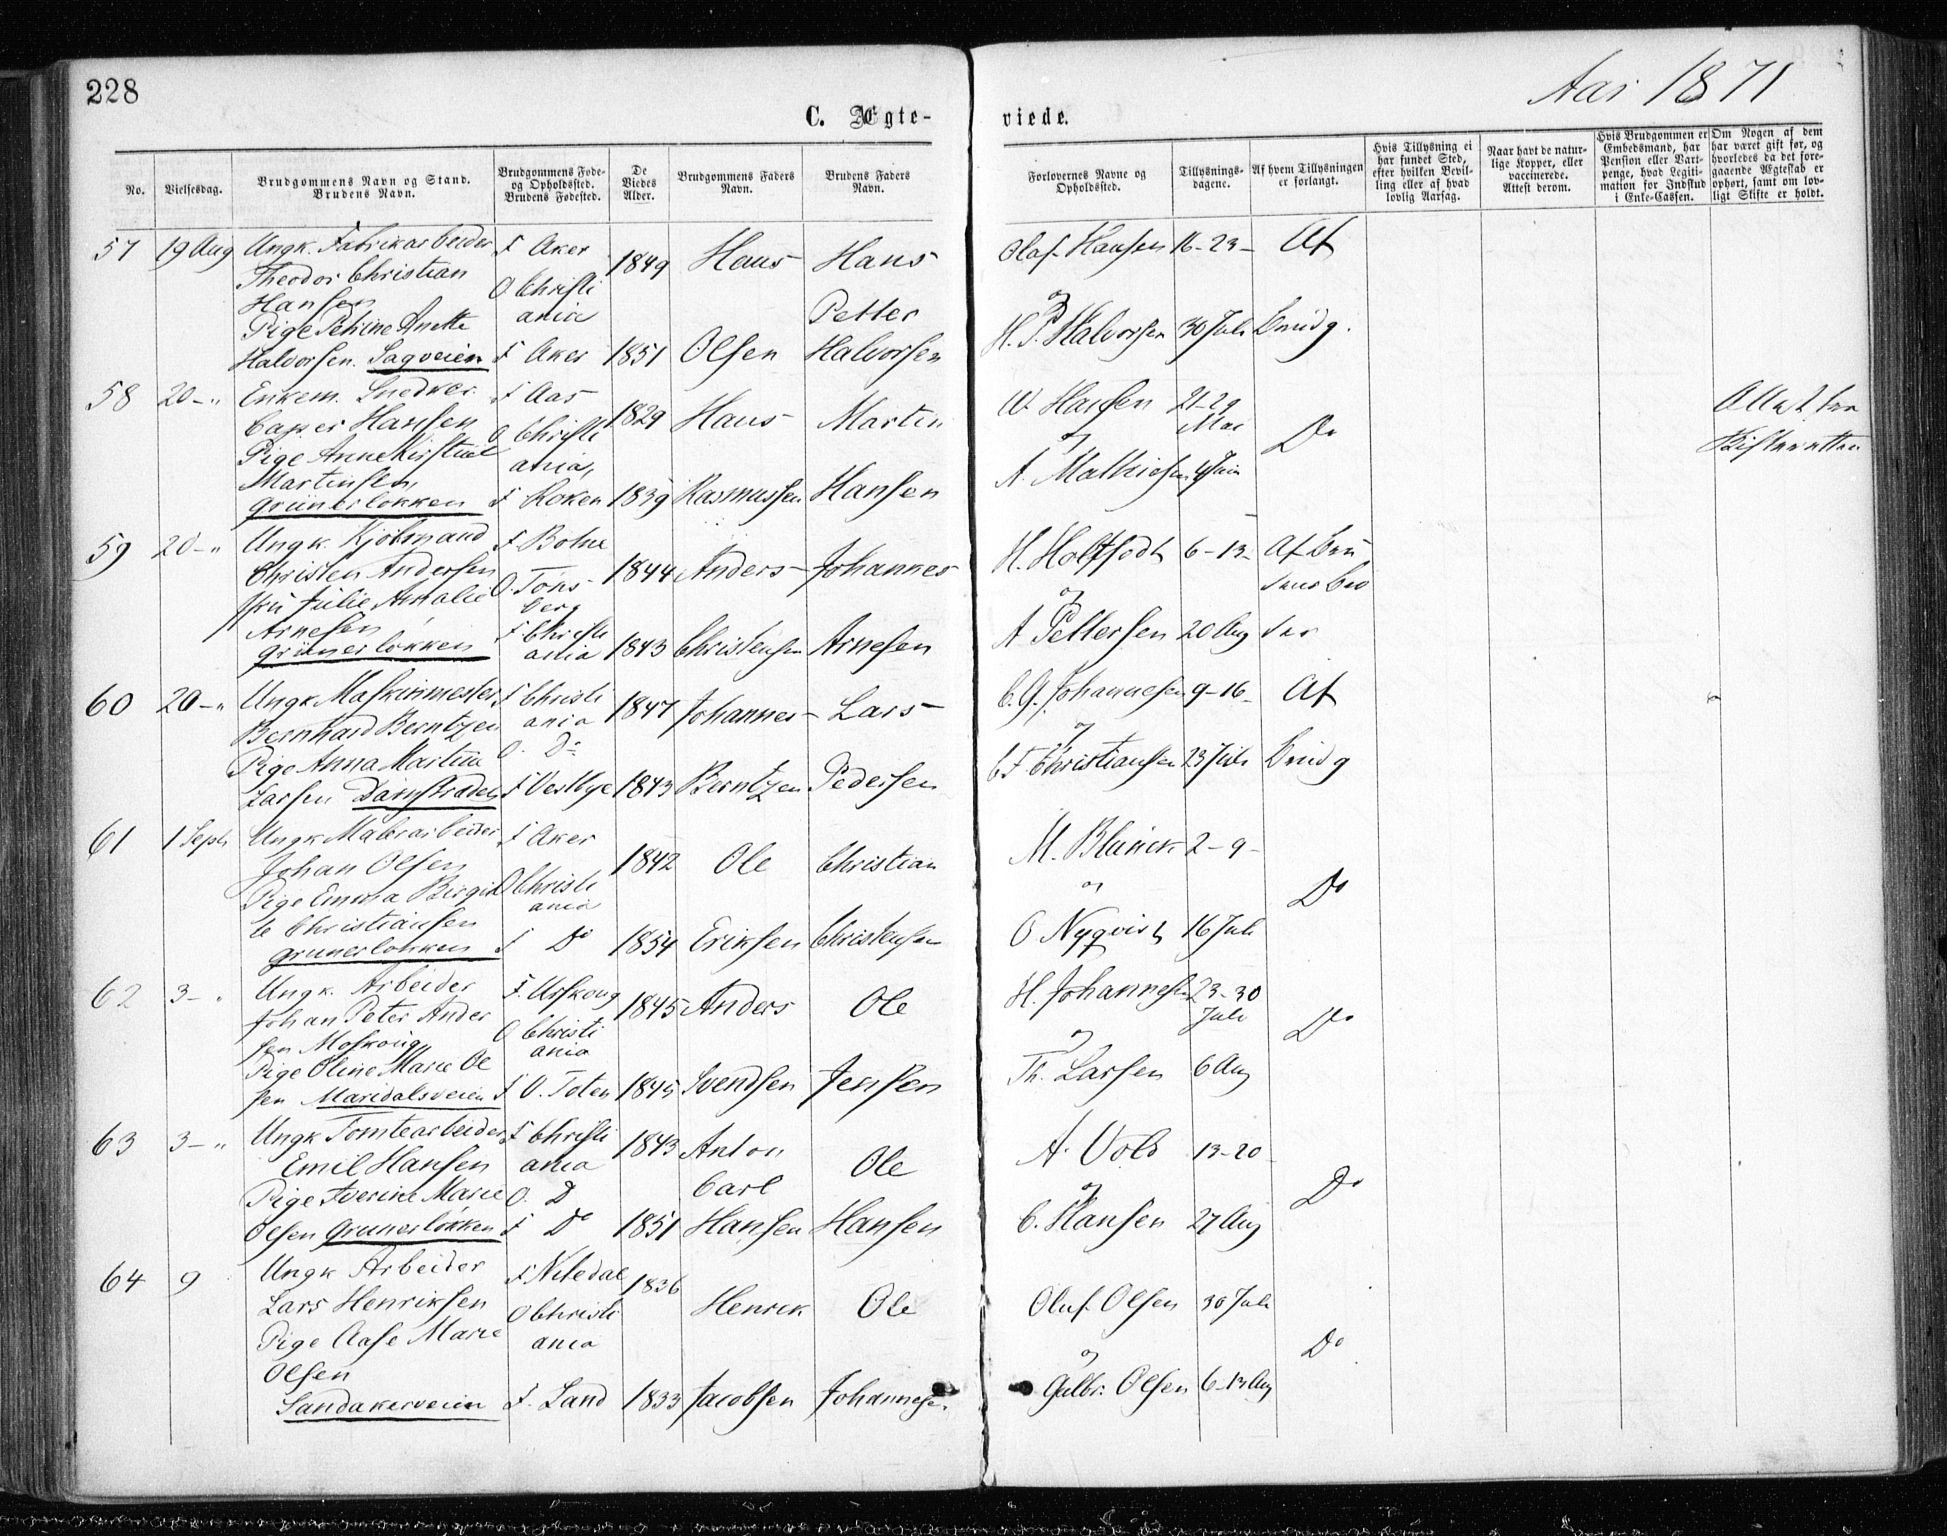 228
Aar 1871
C. Ægte-
viede.
No.
Vielsesdag.
Brudgommens Navn og Stand.
Brudens Navn.
Brudgommens Føde-
og Opholdssted.
Brudens Fødested.
De
Viedes
Alder.
Brudgommens Faders
Navn.
Brudens Faders
Navn.
Forlovernes Navne og
Opholdssted.
Tillysnings-
dagene.
Af hvem Tillysningen
er forlangt.
Hvis Tillysning ei
har fundet Sted,
efter hvilken Bevil-
ling eller af hvad
lovlig Aarsag.
Naar havt de natur-
lige Kopper, eller
vaccinerede.
Attest derom.
Hvis Brudgommen er
Embedsmand, har
Pension eller Vart-
penge, hvad Legiti-
mation for Indskud
i Enke-Cassen.
Om Nogen af dem
har været gift før, og
hvorledes da det fore-
gaaende Ægteskab er
ophørt, samt om lov-
ligt Skifte er holdt.
57 19 Aug Ungk. Fabrikarbeider
Theodor Christian
Hansen
Pige Petrine Anette
Halvorsen. Sagveien
F Aker
O Christi
ania
F Aker
1849
1851
Hans
Olsen
Hans
Petter
Halvorsen
Olaf Hansen
og
H. P. Halvorsen
16-23-
30 Juli
Af
Brudg.
58 20-" Enkem. Snedker
Casper Hansen
Pige Anne Kirstine
Martinsen
Grünerløkken
F Aas
O Christi
ania,
F Røken
1829
1839
Hans
Rasmussen
Martin
Hansen
W. Hansen
og
A. Mathiesen
21-29
Mai
4 Juni
Do
59 20-" Ungk. Kjøbmand
Christen Andersen
Julie Amalie
Arnesen
Grünerløkken
F Botne
O. Tøns-
berg
F Christi
ania
1844
1843
Anders
Christensen
Johannes
Arnesen
H. Holtfodt
og
A Pettersen
6-13-
20 Aug
Af Bru
60 20-" Ungk Maskinmester
Bernhard Berntzen
Pige Anna Martine
Larsen
F Christi
ania
O. Do
F Vestbye
1847
1843
Johannes
Berntzen
Lars
Pedersen
C. G. Johannesen
og
C F. Christiansen
9-16-
23 Juli
Af
Brudg
61 1 Sept Ungk Malerarbeider
Johan Olsen
Pige Emma Birgit
te Christiansen
Grünerløkken
F Aker
O Christi
ania
F Do
1842
1854
Ole
Eriksen
Christian
Christensen
M. Blunck
og
O Nyqvist
2-9-
16 Juli
Do
62 3-" Ungk. Arbeider
Johan Peter Ander
sen Moskoug
Pige Oline Marie Ol
sen Maridalsveien
F. Urskoug
O Christi
ania
F O. Toten
1845
1845
Anders
Svendsen
Ole
Jensen
H. Johannesen
og
Th. Larsen
23-30
Juli
6 Aug
Do
63 3-" Ungk Tomtearbeider
Emil Hansen
Pige Iverine Marie
Olsen Grunerløkken
F Christi
ania
O. D
F Do
1843
1851
Anton
Carl
Hansen
Ole
Hansen
A. Vold
og
C. Hansen
13-20-
27 Aug
Do
64 9 Ungk Arbeider
Lars Henriksen
Pige Aase Marie
Olsen
Sandakerveien
F Nitedal
O Christi
ania
F. Land
1836
1833
Henrik
Jacobsen
Ole
Johannesen
Oluf Olsen
og
Gulbr. Olsen
30 Juli
6-13 Aug
Do